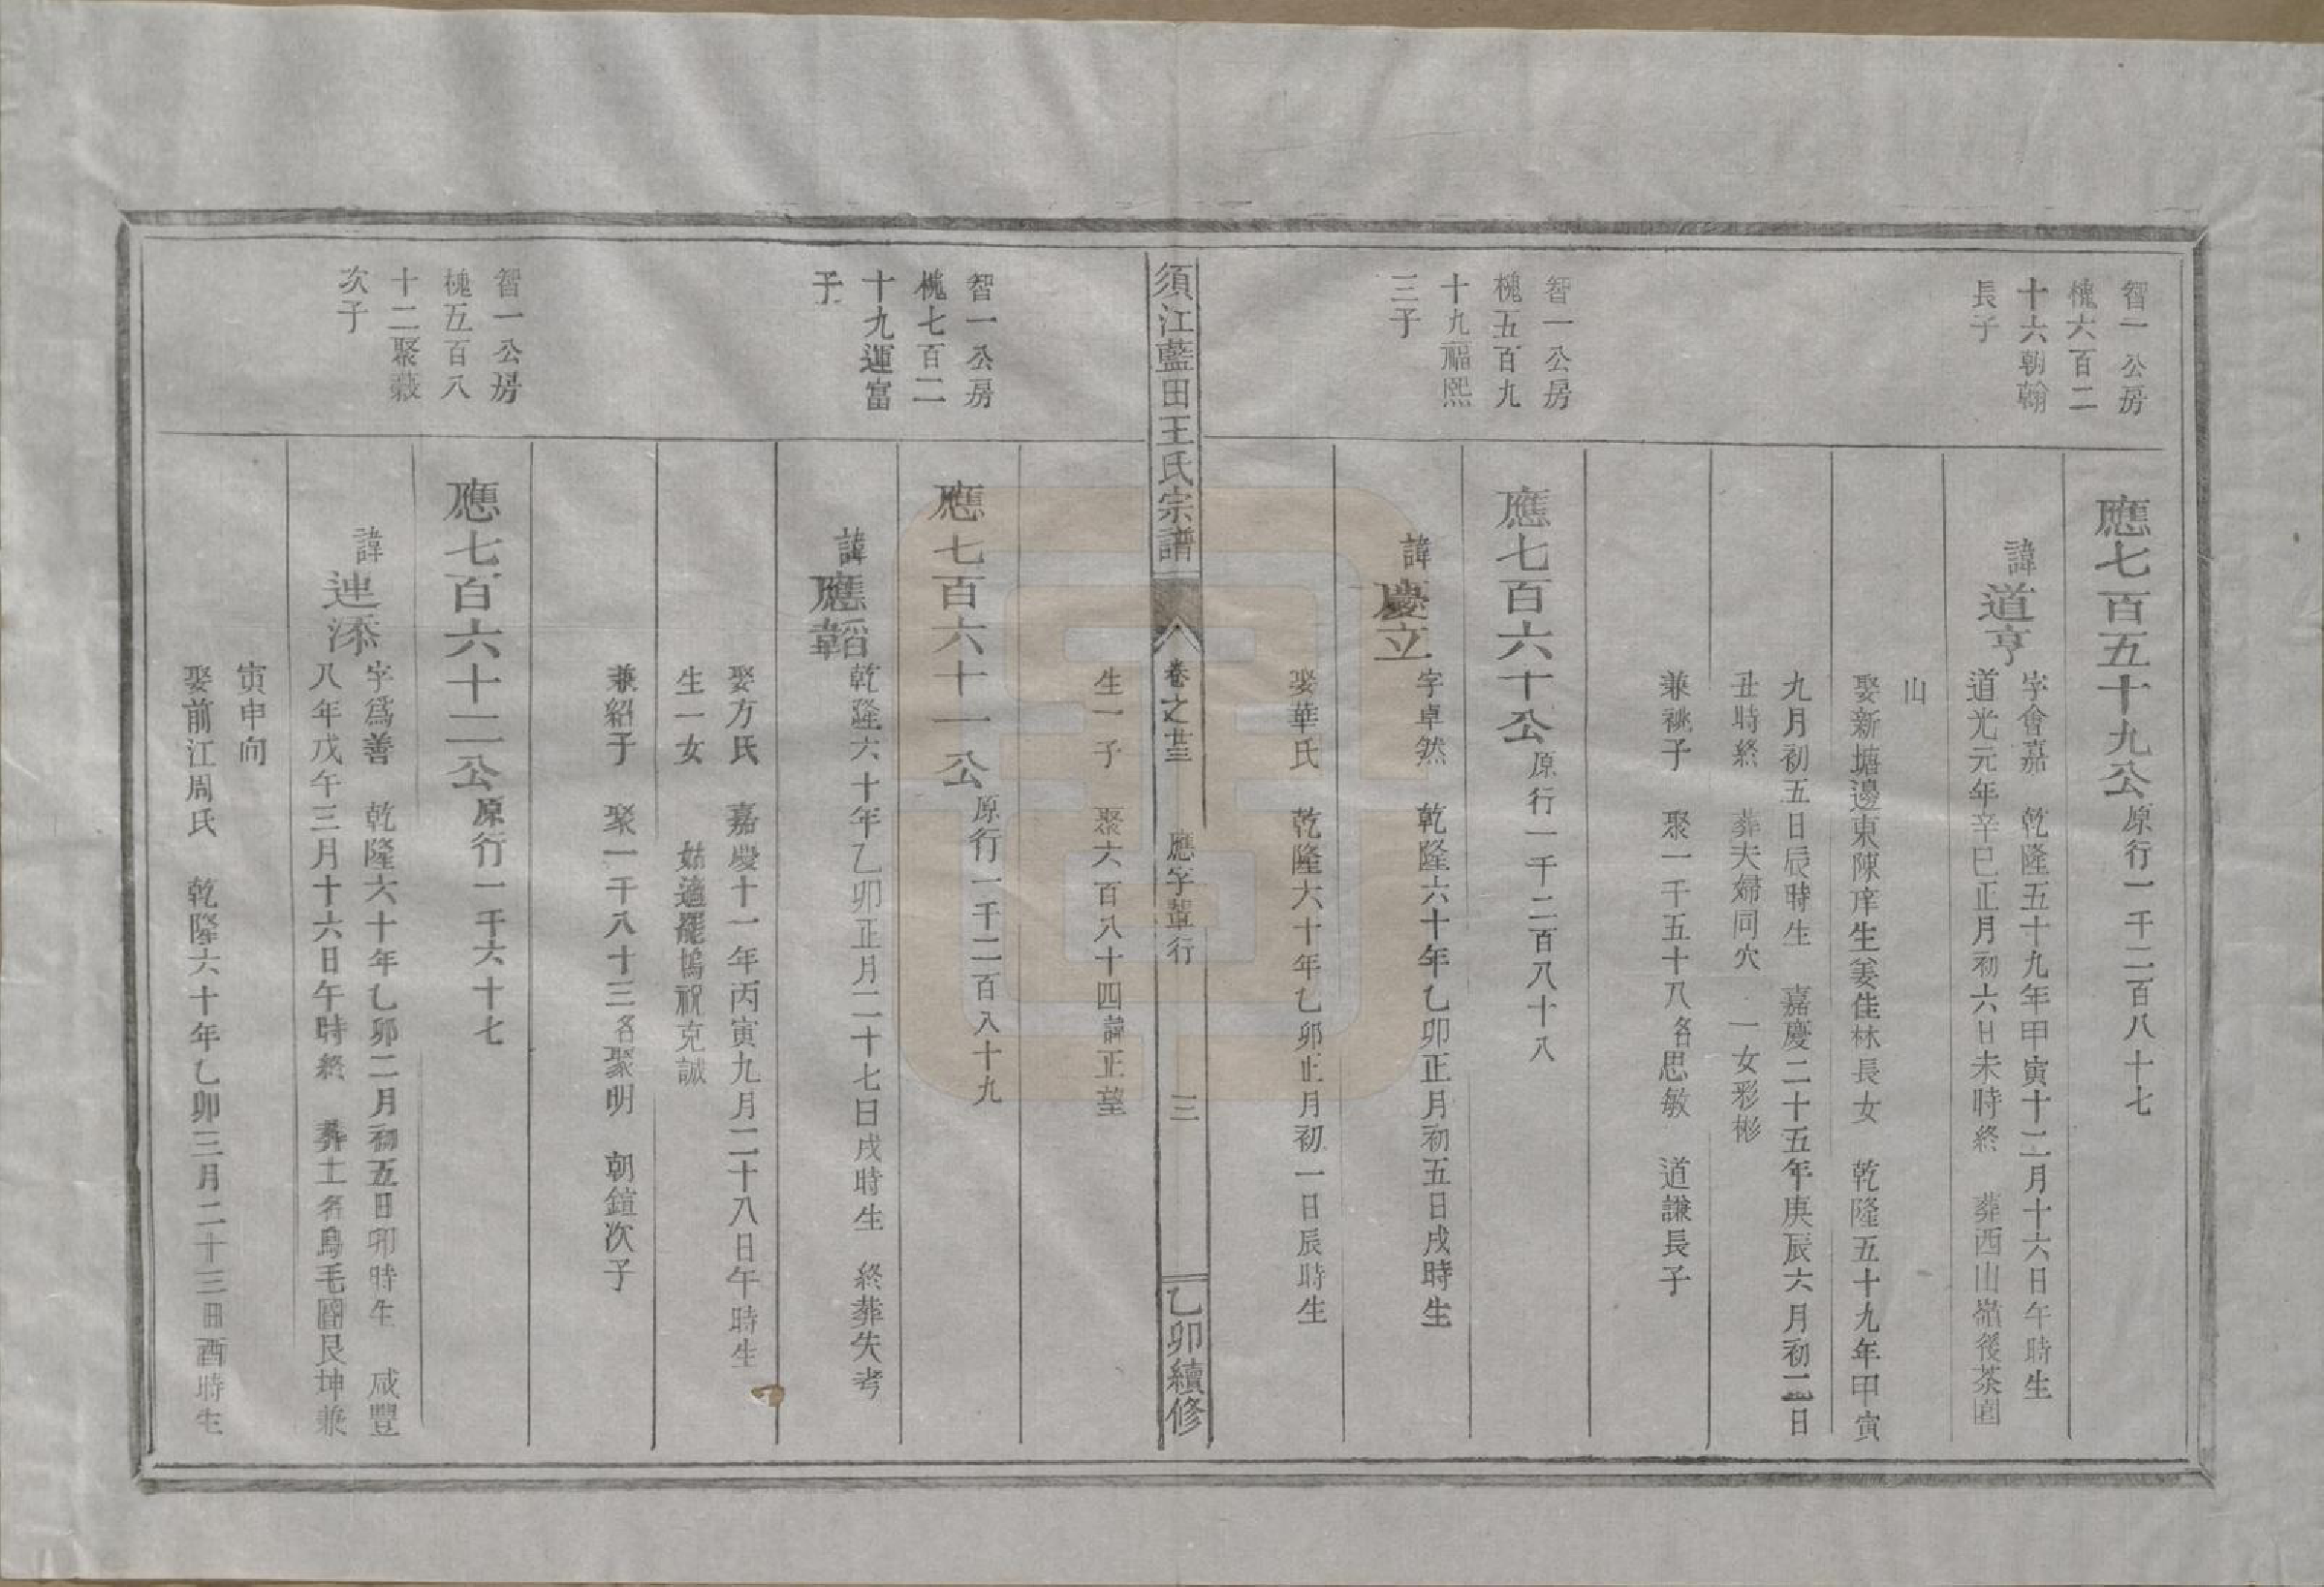 智一公房
槐六百二
十六朝翰
長子
應七百五十九公原行一千二百八十七
諱道亨
字會嘉 乾隆五十九年甲寅十二月十六日午時生
道光元年辛巳正月初六日未時終 葬西山嶺後茶園
山
娶新塘邊東陳庠生姜佳林長女 乾隆五十九年甲寅
九月初五日辰時生 嘉慶二十五年庚辰六月初二日
丑時終 葬夫婦同穴 一女彩彬
兼祧子 聚一千五十八名思敏 道謙長子
智一公房
槐五百九
十九福熙
三子
應七百六十公原行一千二百八十八
諱慶立
字卓然 乾隆六十年乙卯正月初五日戌時生
娶華氏 乾隆六十年乙卯正月初一日辰時生
須江藍田王氏宗譜
卷之廿三
應字輩行
三
乙卯續修
生一子 聚六百八十四諱正望
智一公房
槐七百二
十九運富
子
應七百六十一公原行一千二百八十九
諱應韜
乾隆六十年乙卯正月二十七日戌時生 終葬失考
娶方氏 嘉慶十一年丙寅九月二十八日午時生
生一女 姑適 塢祝克誠
兼紹子 聚一千八十三名聚明 朝鎧次子
智一公房
槐五百八
十二聚
次子
應七百六十二公原行一千六十七
諱連添
字為善 乾隆六十年乙卯二月初五日卯時生 咸豐
八年戊午三月十六日午時終 葬土名烏毛圖艮坤兼
寅申向
娶前江周氏 乾隆六十年乙卯三月二十三日酉時生